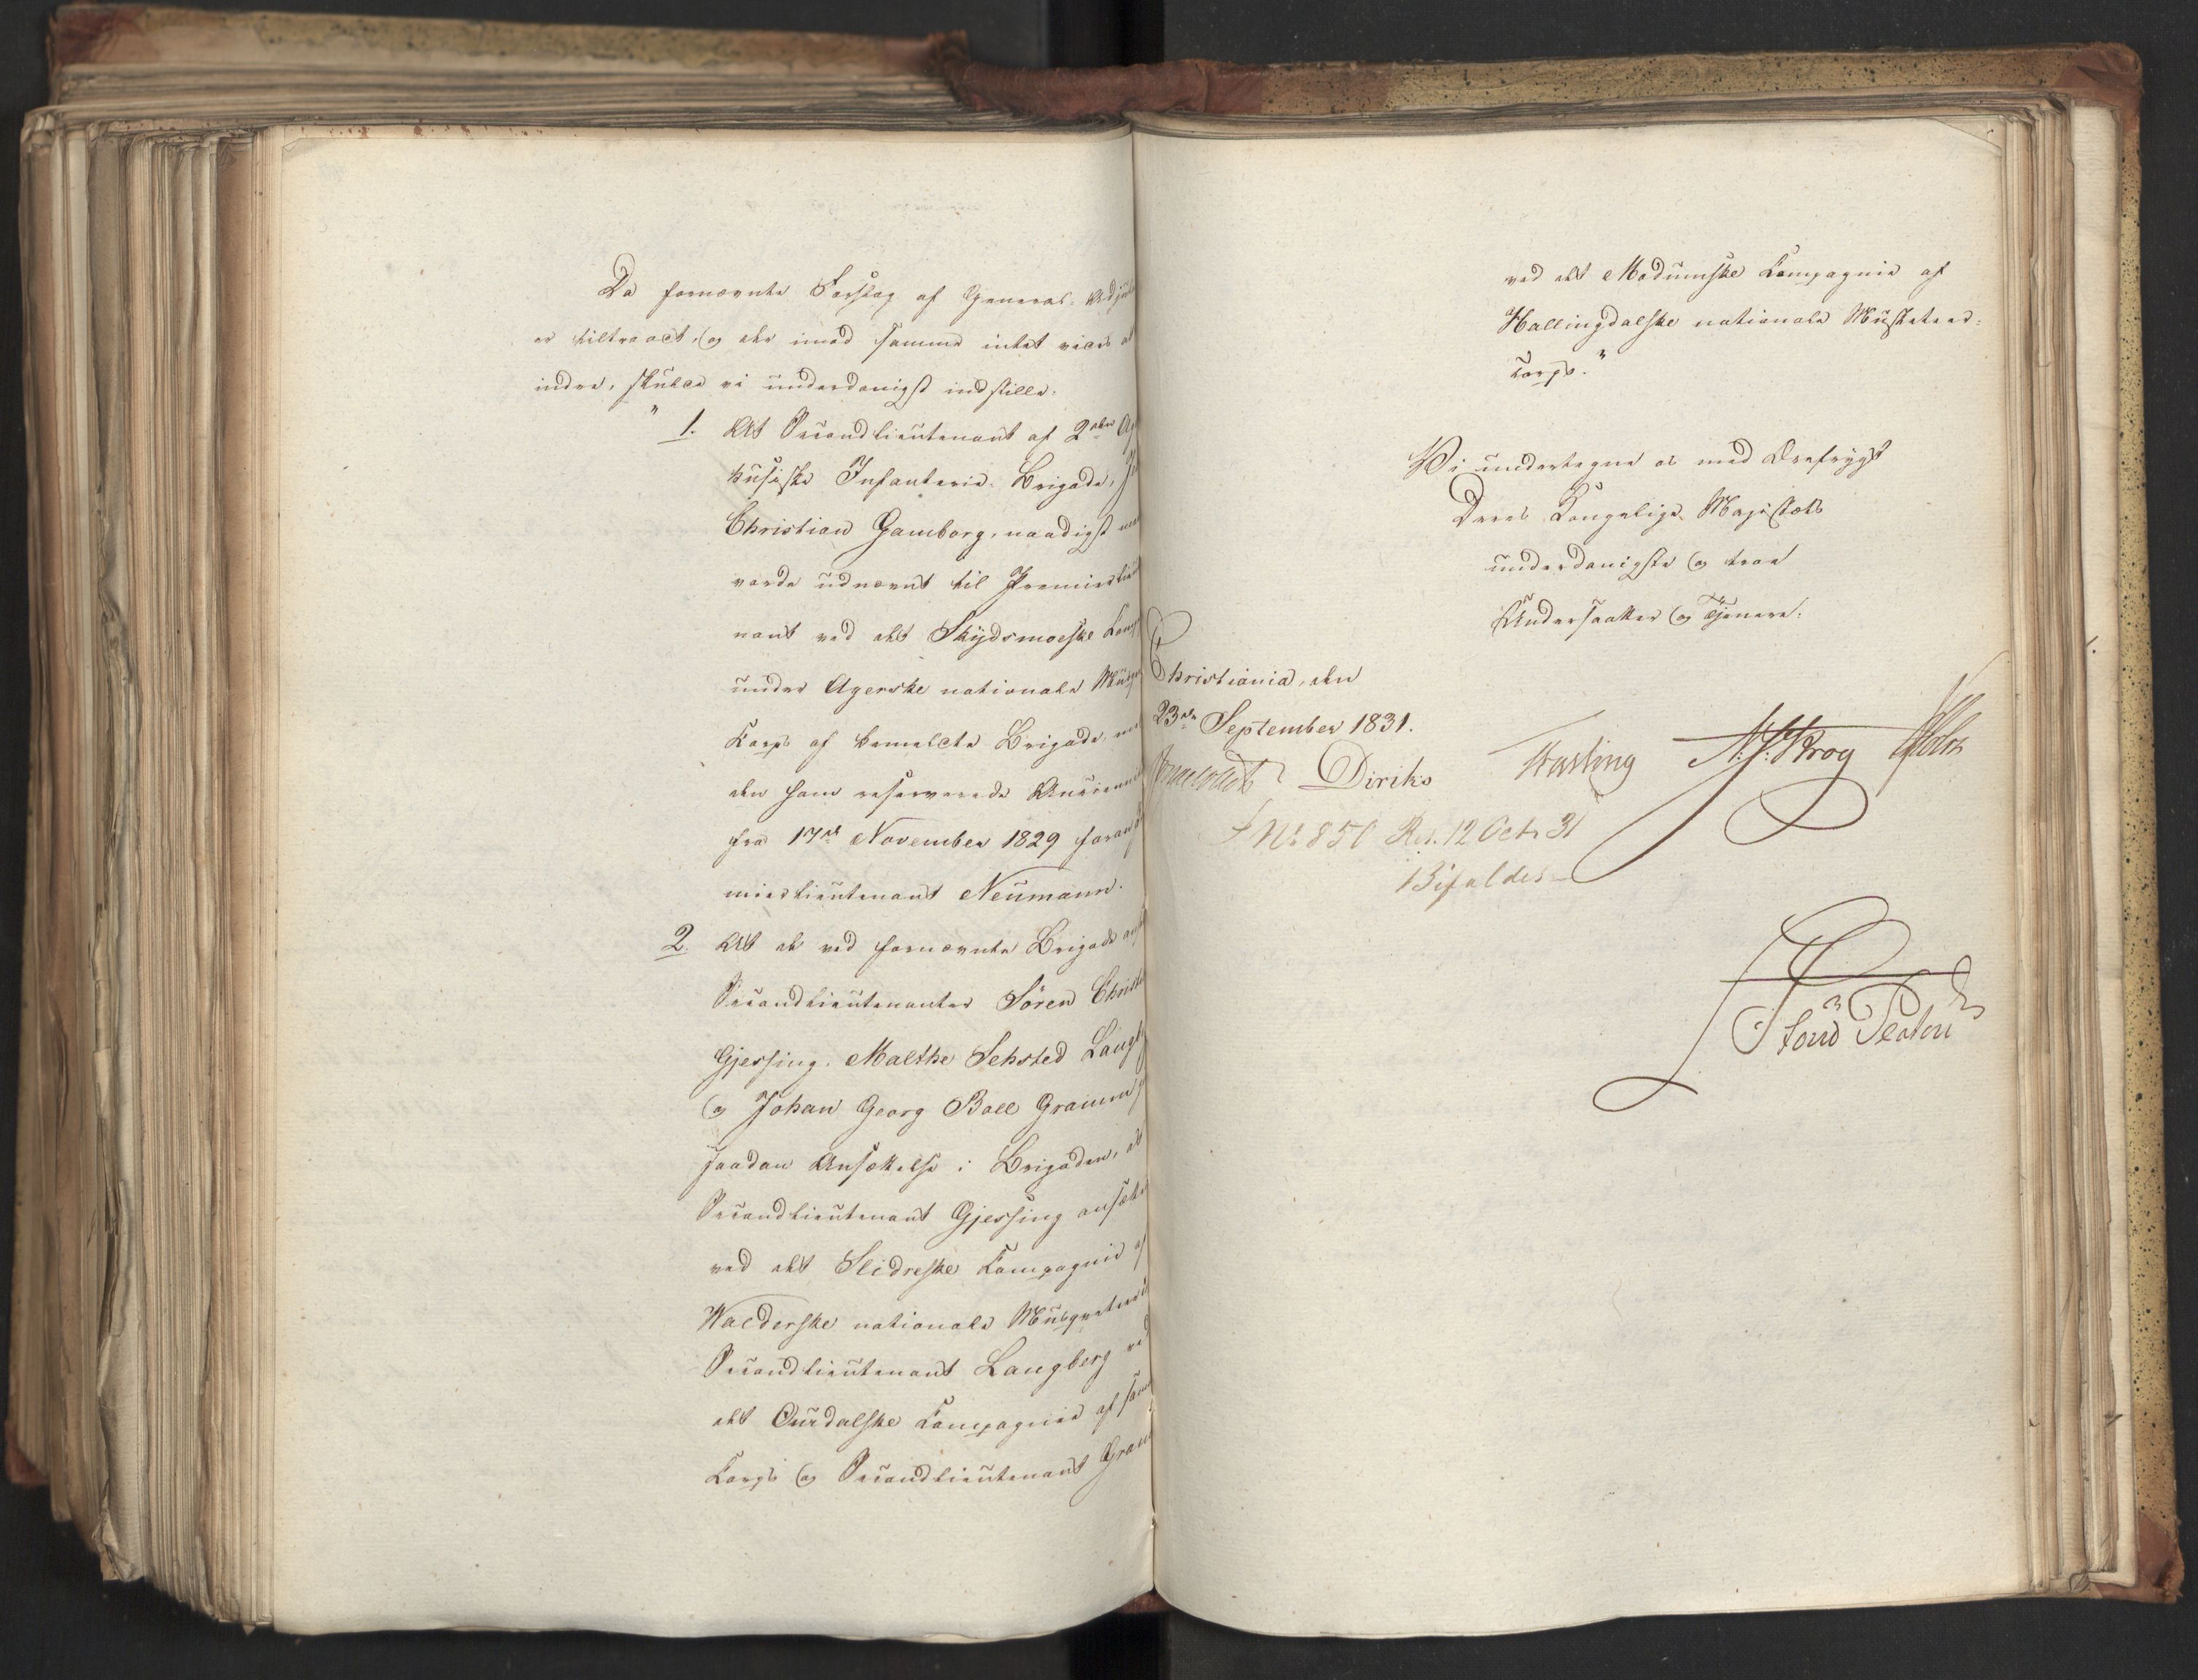 Da fornævnte Forslag af General-Adju
er tiltraadt, og der imod samme intet vides at
indre, skulle vi underdanigst indstille:
" 1. At Secondlieutenant af 2den Ag
huusiske Infanterie-Brigade,
Christian Gamborg, naadigst
vorde udnævnt til Premierlieut
nant ved det Skydsmoeske Comp
under Agerske nationale Musq
Corps af bemeldte Brigade, med
den ham reserverede Ancienni
fra 17de November 1829 foran
mierlieutenant Neumann.
2. At de ved fornævnte Brigade ans
Secondlieutenanter Sören Christ
Gjessing, Malthe Sehsted Langb
og Johan Georg Boll Gramm
saadan Ansættelse i Brigaden, at
Secondlieutenant Gjessing ansætt
ved det Slidreske Compagnie af
Walderske nationale Musqueteer
Secondlieutenant Langberg ved
det Ourdalske Compagnie af sam
Corps og Secondlieutenant Gram
ved det Modumske Compagnie af
Hallingdalske nationale Musketeer-
Corps."
Vi undertegne os med Ærefrygt
Deres Kongelige Majestæts
underdanigste og troe
Undersaatter og Tjenere.
Christiania, den
23de September 1831.
Diriks Fasting N. J. Krog Holst
No 850 Res. 12 Octr 31
Bifaldes